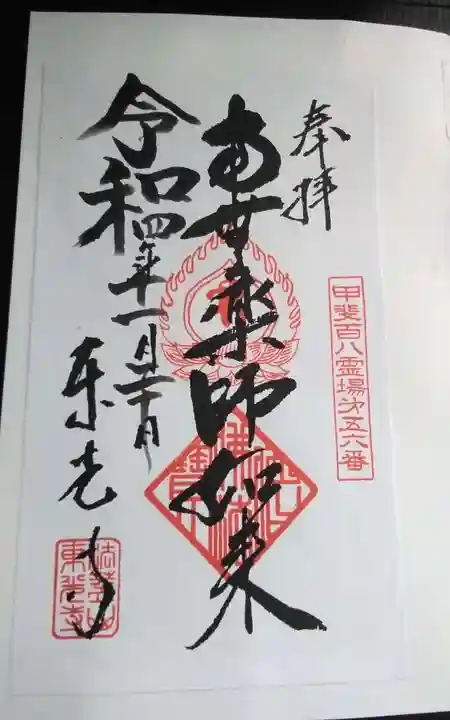 奉拝
甲斐百八霊場第五六番
南無薬師如来
令和四年十一月二十日
東光寺
東光寺